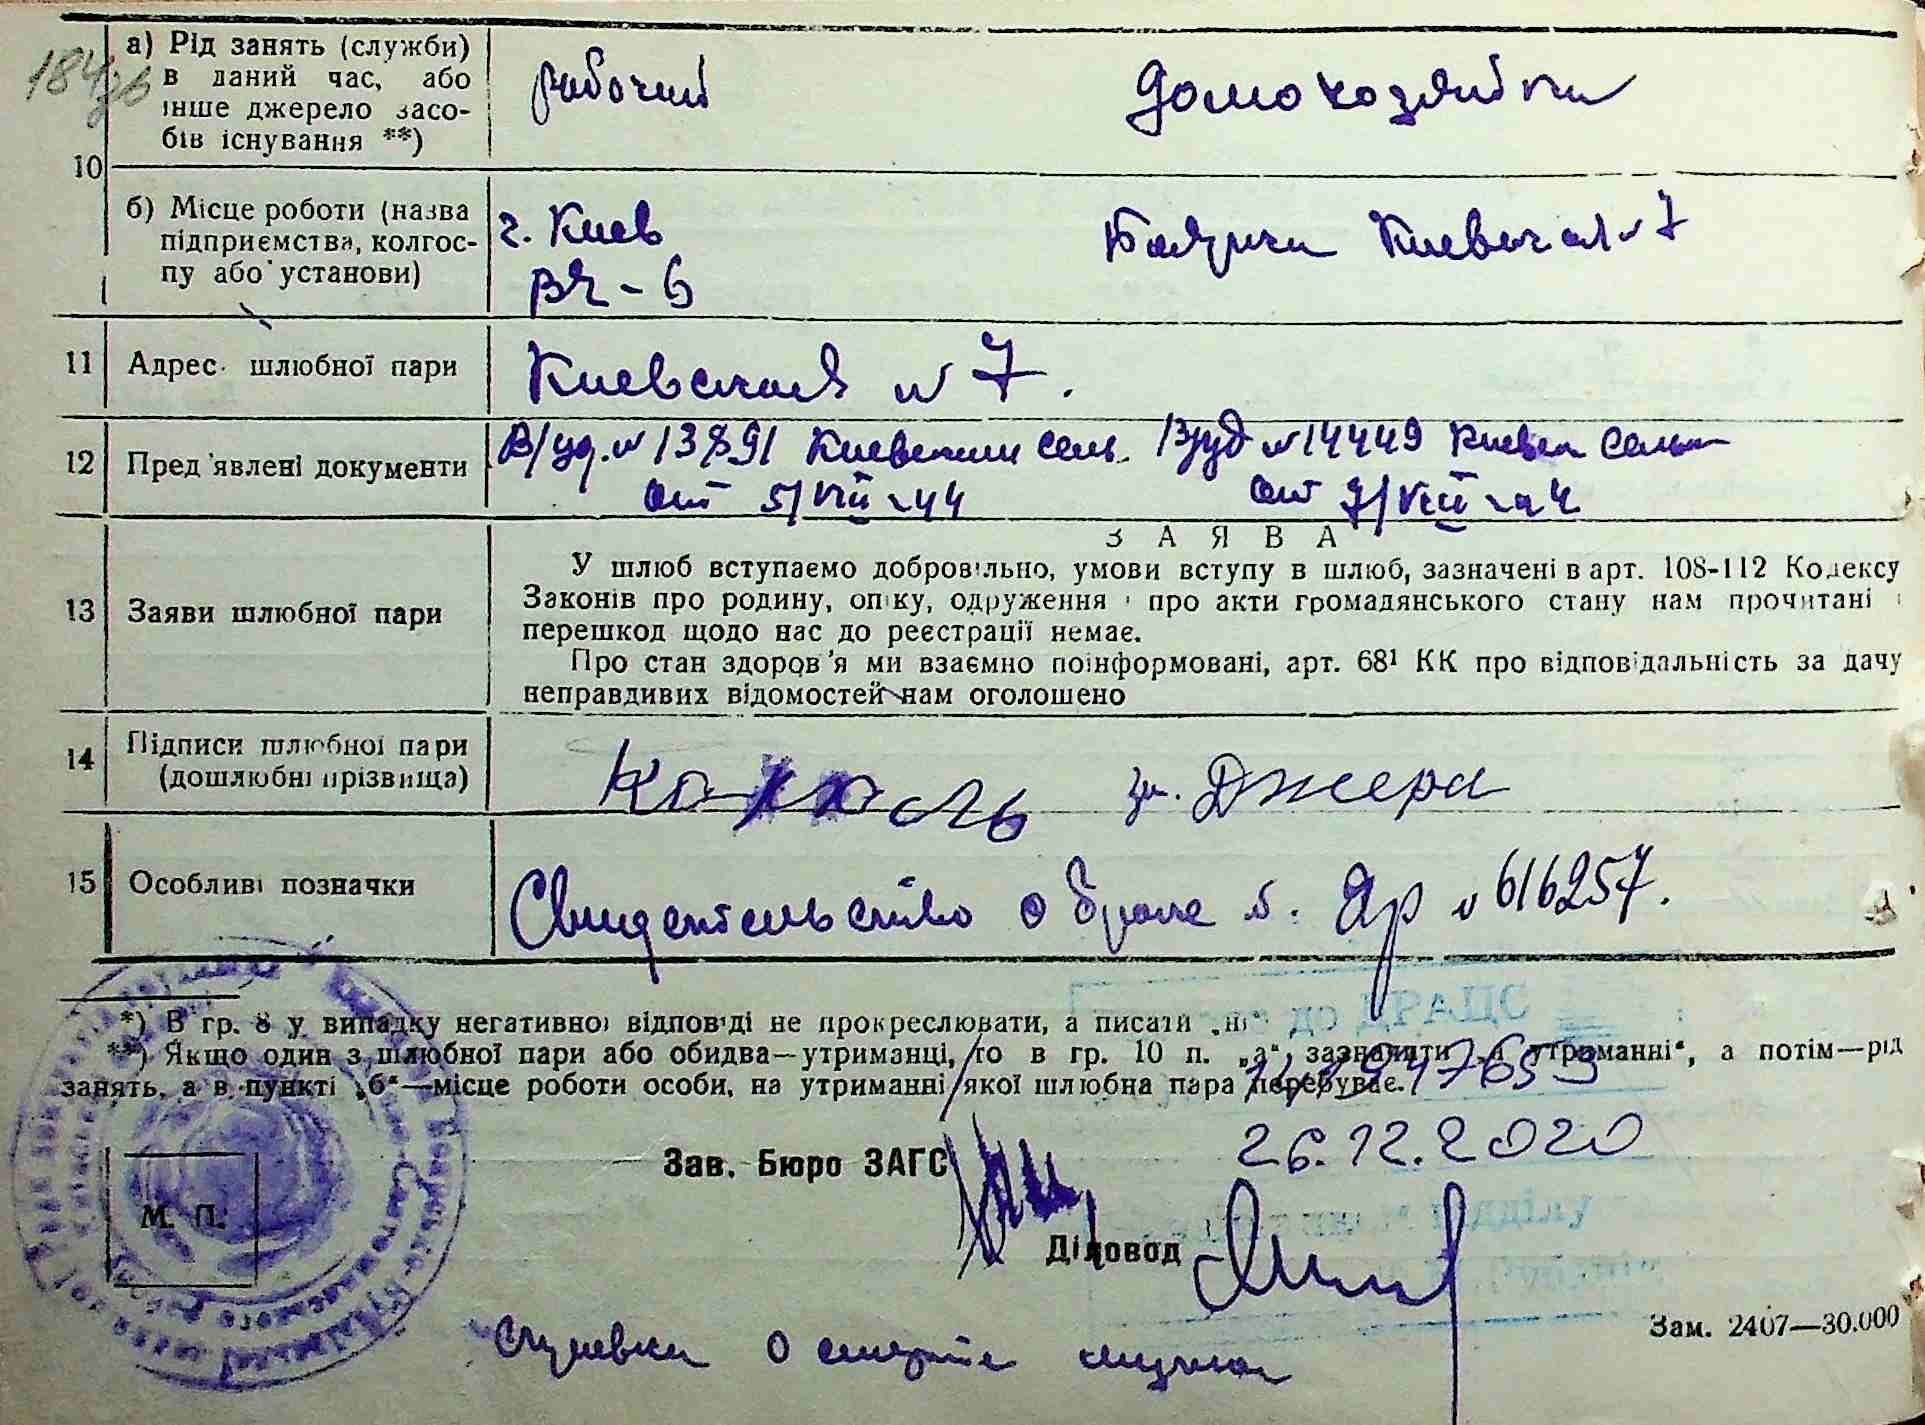 184зв
а) Рід занять (служби)
в даний час, або
інше джерело засо-
бів існування **)
рабочий
домохозяйка
10
б) Місце роботи (назва
підприємства, колгос-
пу або установи)
г. Киев
ВЧ-6
Боярка Киевская №7
11 Адрес шлюбної пари
Киевская №7.
12 Пред'явлені документи
В/уд. №13891 Киевским сель.
от 5/VIII-44
В/уд №14449 Киевск сельс
от 7/VIII-44
13 Заяви шлюбної пари
ЗАЯВА
У шлюб вступаємо добровільно, умови вступу в шлюб, зазначені в арт. 108-112 Кодексу
Законів про родину, опіку, одруження і про акти громадянського стану нам прочитані і
перешкод щодо нас до реєстрації немає.
Про стан здоров'я ми взаємно поінформовані, арт. 68¹ КК про відповідальність за дачу
неправдивих відомостей нам оголошено
14 Підписи шлюбної пари
(дошлюбні прізвища)
Джера
15 Особливі позначки
Свидетельство о браке № 616257.
*) В гр. 8 у випадку негативної відповіді не прокреслювати, а писати „ні"
**) Якщо один з шлюбної пари або обидва—утриманці, то в гр. 10 п. „а" зазначити „на утриманні", а потім—рід
занять, а в пункті „б"—місце роботи особи, на утриманні якої шлюбна пара перебуває.
до ДРАЦС
26.12.2020
Зав. Бюро ЗАГС
М. П.
відділу
Діловод
Зам. 2407—30.000
о смерти мужа